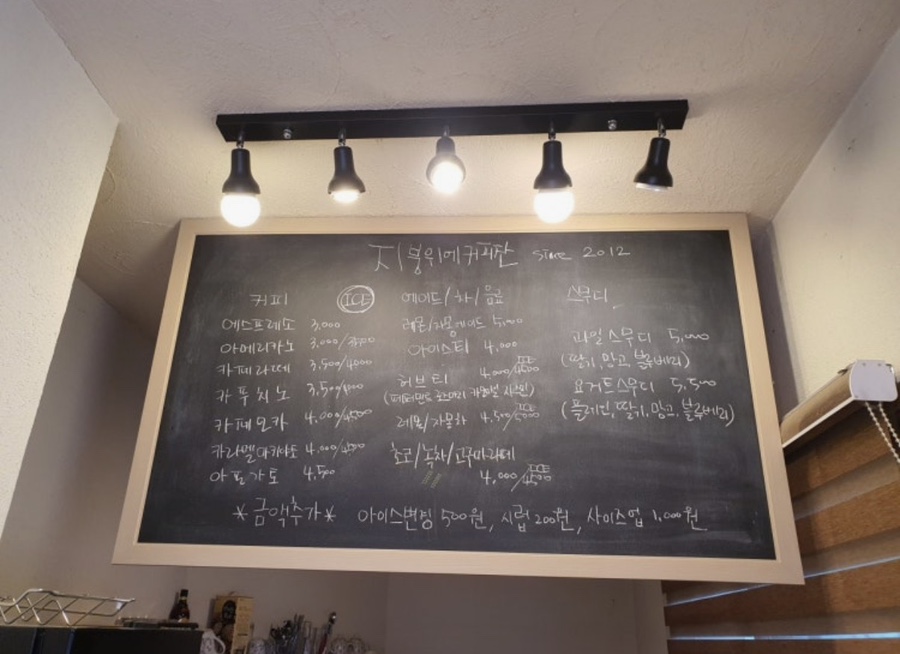 지붕위에커피잔 since 2012
커피 ICE
에스프레소 3,000
아메리카노 3,000/3500
카페라떼 3,500/4000
카푸치노 3,500/4000
카페모카 4,000/4500
카라멜마키아또 4,000/4500
아포가토 4,500
에이드/차/음료
레몬/자몽에이드 5,000
아이스티 4,000
허브티 4,000/ICE 4500
(페퍼민트 로즈마리 카모마일 자스민)
레몬/자몽차 4,500/ICE 5000
초코/녹차/고구마라떼
4,000/ICE 4500
스무디
과일스무디 5,000
(딸기, 망고, 블루베리)
요거트스무디 5,500
(플레인, 딸기, 망고, 블루베리)
*금액추가* 아이스변경 500원, 시럽 200원, 사이즈업 1,000원